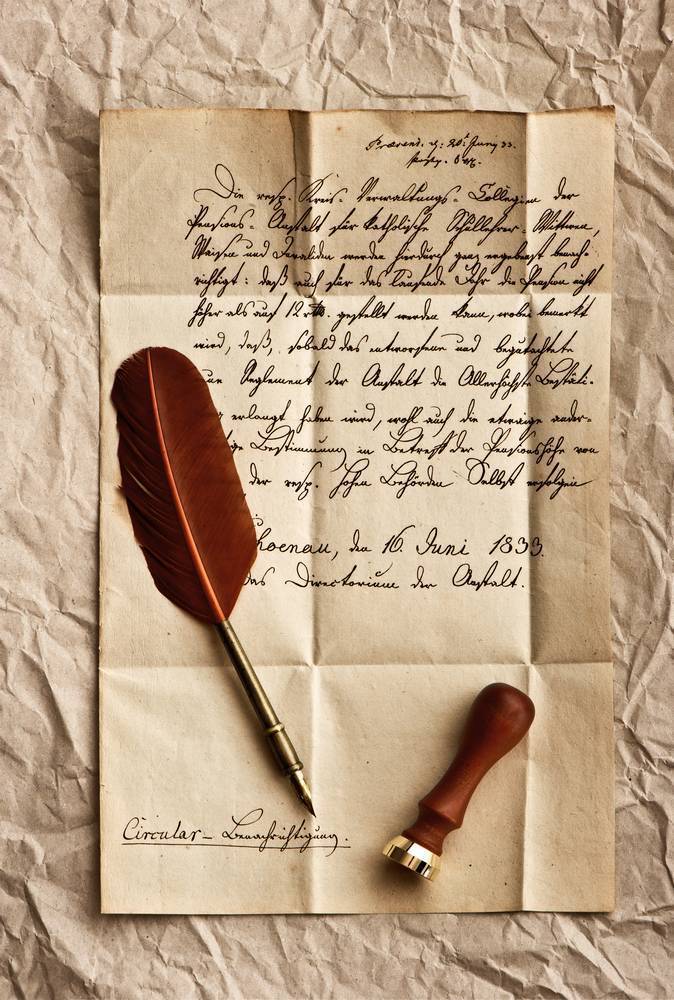 Praesent. d: 20t Juny 33.
Die resp. Kreis- Verwaltungs- Collegien der
Pensions- Anstalt für katholische Schullehrer- Wittwen,
Waisen und Invaliden werden hierdurch ganz ergebenst benach-
richtigt: daß auch für das laufende Jahr die Pension nicht
höher als auf 12 rtlr. gestellt werden kann, wobei bemerkt
wird, daß, sobald das entworfene und begutachtete
neue Reglement der Anstalt die Allerhöchste Bestäti-
erlangt haben wird, wohl auch die etwaige ander-
Bestimmung in Betreff der Pensionshöhe von
der resp. hohen Behörden Selbst erfolgen
hoenau, den 16. Juni 1833.
Das Directorium der Anstalt.
Circular- Benachrichtigung.